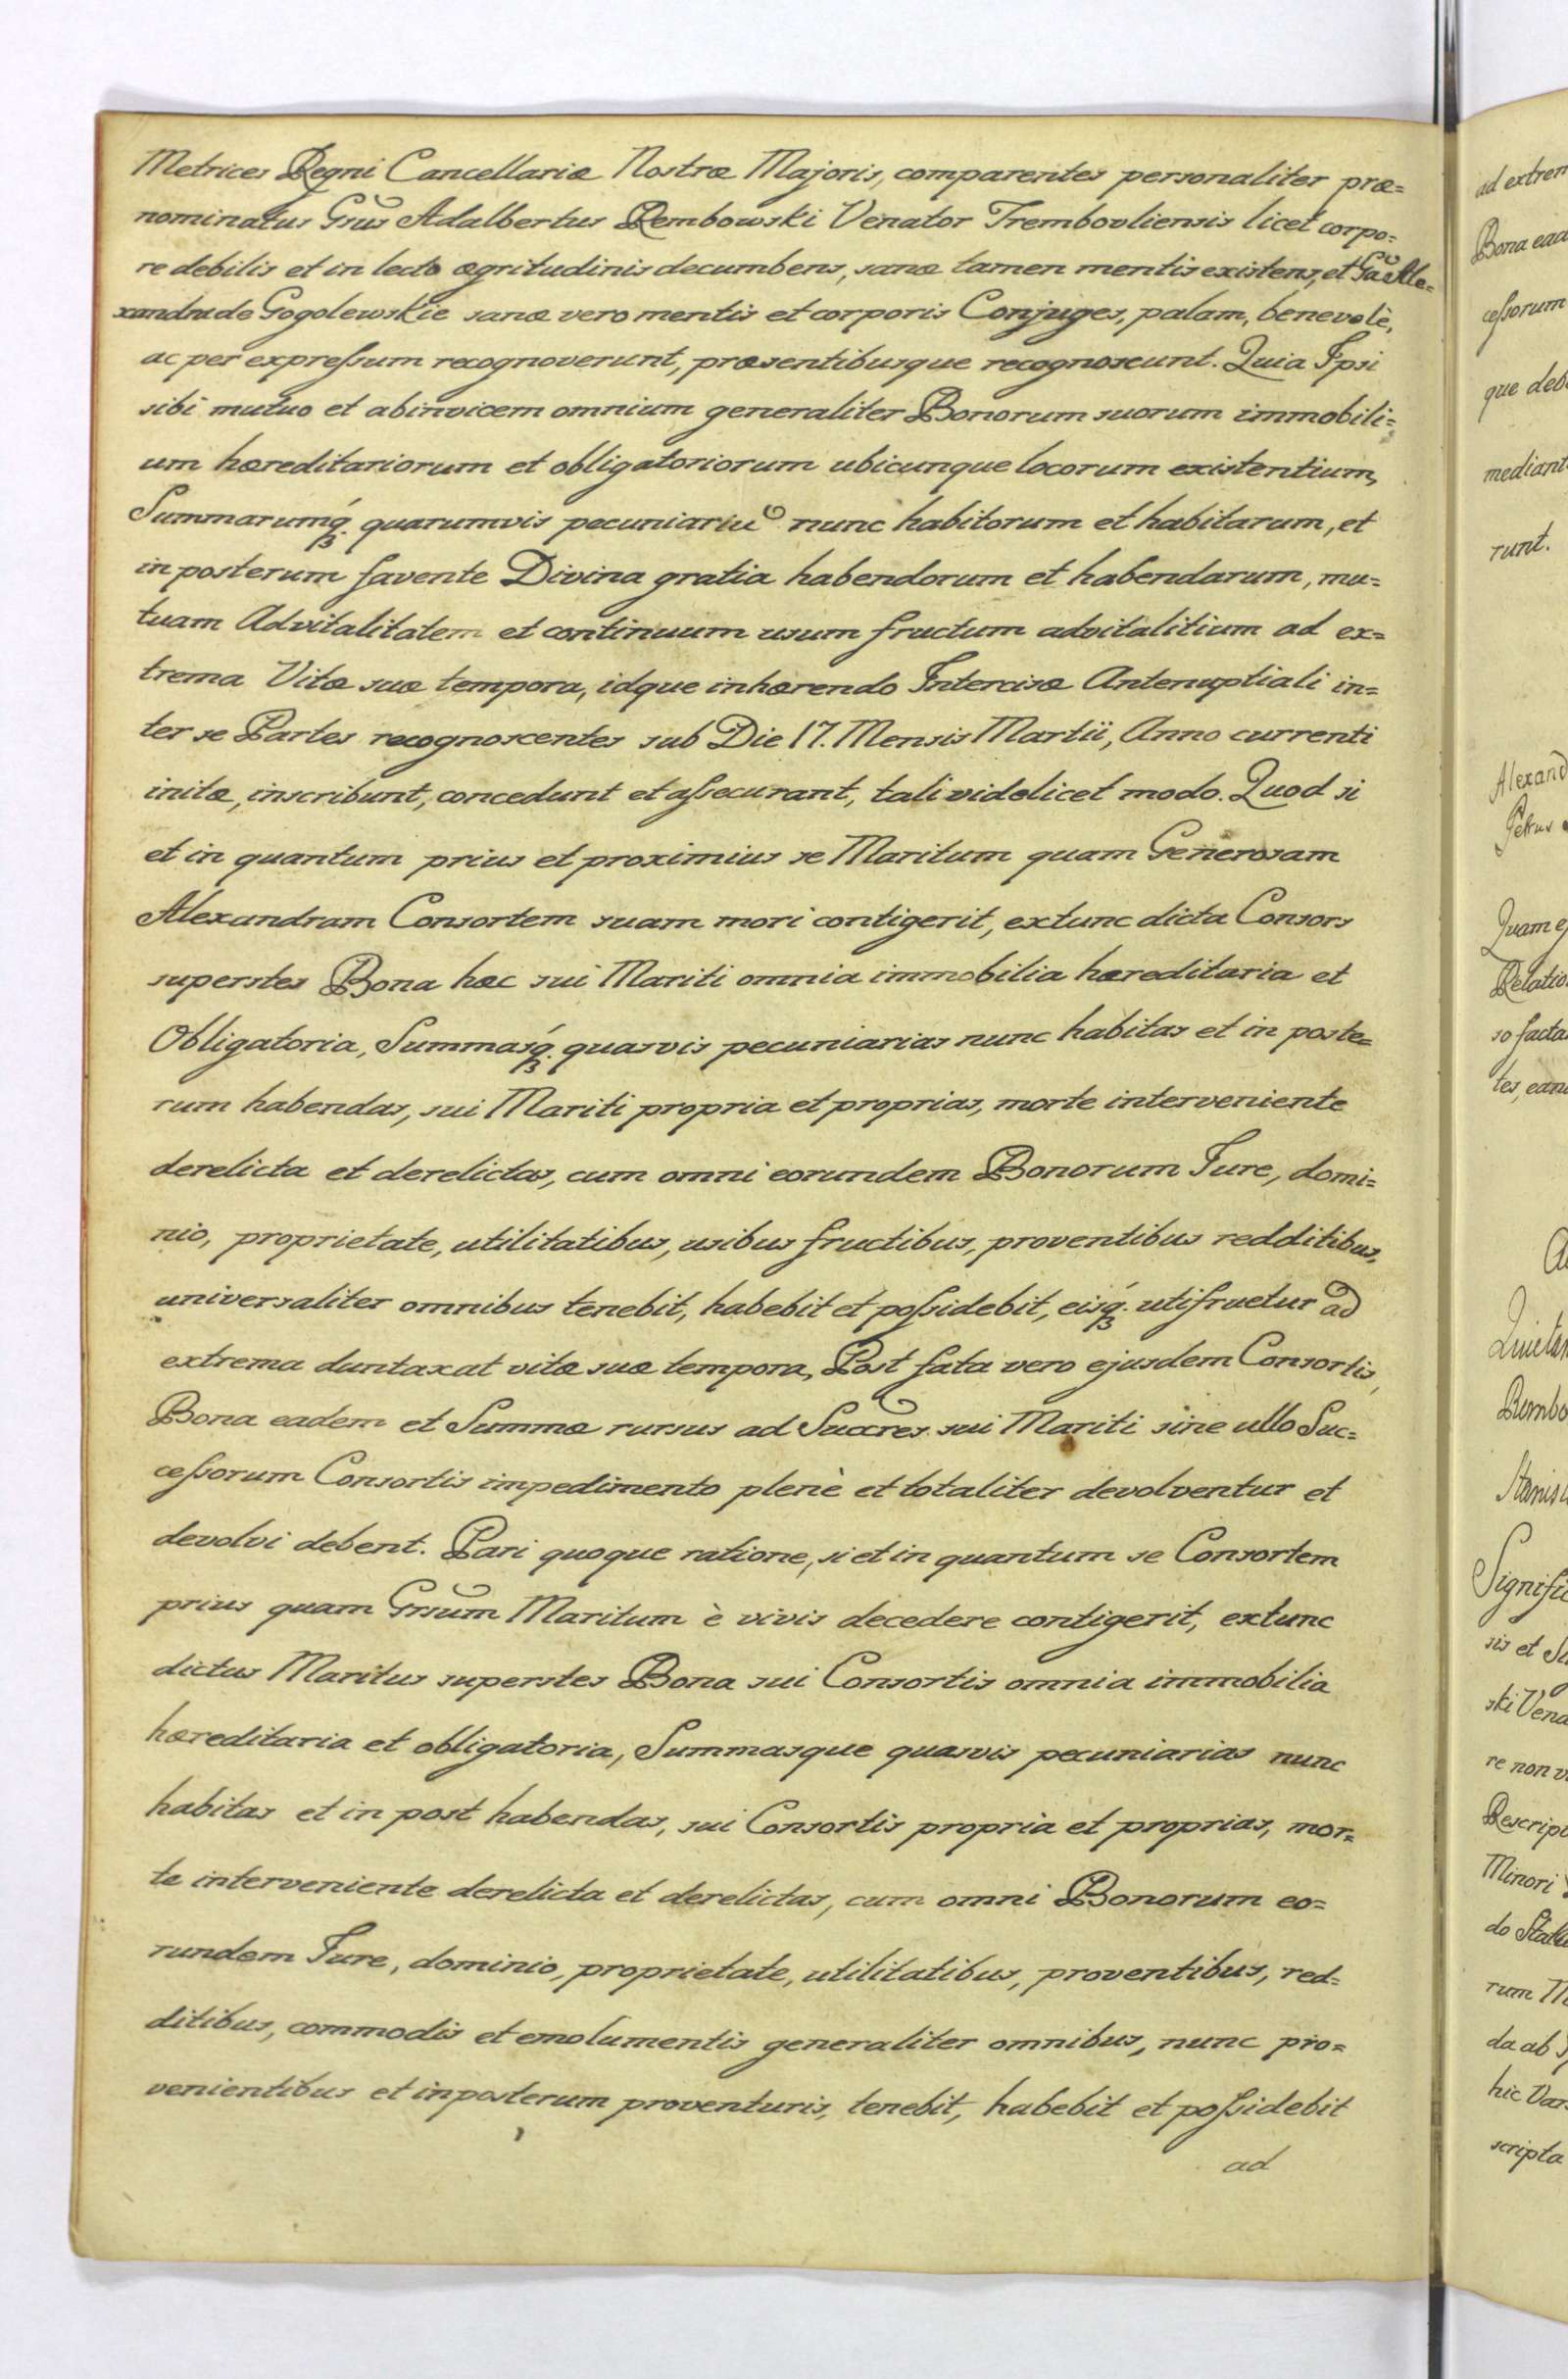 Metrices Regni Cancellariæ Nostræ Majoris, comparentes personaliter præ=
nominatus Gsus Adalbertus Rembowski Venator Trembovliensis licet corpo=
re debilis et in lecto ægritudinis decumbens, sanæ tamen mentis existens, et Ga Ale=
xandra de Gogolewskie sanæ vero mentis et corporis Conjuges, palam, benevolè,
ac per expreſsum recognoverunt, præsentibusque recognoscunt. Quia Ipsi
sibi mutuo et abinvicem omnium generaliter Bonorum suorum immobili=
um hæreditariorum et obligatoriorum ubicunque locorum existentium,
Summarumq́ꝫ. quarumvis pecuniariu nunc habitorum et habitarum, et
in posterum favente Divina gratia habendorum et habendarum, mu=
tuam Advitalitatem et continuum usum fructum advitalitium ad ex=
trema Vitæ suæ tempora, idque inhærendo Intercisæ Antenuptiali in=
ter se Partes recognoscentes sub Die 17. Mensis Martii, Anno currenti
initæ, inscribunt, concedunt et aſsecurant, tali videlicet modo. Quod si
et in quantum prius et proximius se Maritum quam Generosam
Alexandram Consortem suam mori contigerit, extunc dicta Consors
superstes Bona hæc sui Mariti omnia immobilia hæreditaria et
Obligatoria, Summasq́ꝫ. quasvis pecuniarias nunc habitas et in poste=
rum habendas, sui Mariti propria et proprias, morte interveniente
derelicta et derelictas, cum omni eorundem Bonorum Jure, domi=
nio, proprietate, utilitatibus, usibus fructibus, proventibus redditibus,
universaliter omnibus tenebit, habebit et poſsidebit, eisq́ꝫ. utifruetur ad
extrema duntaxat vitæ suæ tempora, Post fata vero ejusdem Consortis,
Bona eadem et Summæ rursus ad Succres sui Mariti sine ullo Suc=
ceſsorum Consortis impedimento plenè et totaliter devolventur et
devolvi debent. Pari quoque ratione, si et in quantum se Consortem
prius quam Grsum Maritum è vivis decedere contigerit, extunc
dictus Maritus superstes Bona sui Consortis omnia immobilia
hæreditaria et obligatoria, Summasque quasvis pecuniarias nunc
habitas et in post habendas, sui Consortis propria et proprias, mor=
te interveniente derelicta et derelictas, cum omni Bonorum eo=
rundem Jure, dominio, proprietate, utilitatibus, proventibus, red=
ditibus, commodis et emolumentis generaliter omnibus, nunc pro=
venientibus et inposterum proventuris, tenebit, habebit et poſsidebit
ad
ad extrem
Bona ead
ceſsorum
que deb
mediant
runt.
Alexand
Petrus
Quam
Relatio
so facta
tes, eand
Quietan
Rembo
Stanis
Signifi
sis et Su
ski Vena
re non v
Rescrip
Minori
do Statu
rum
da ab
hic Var
scripta